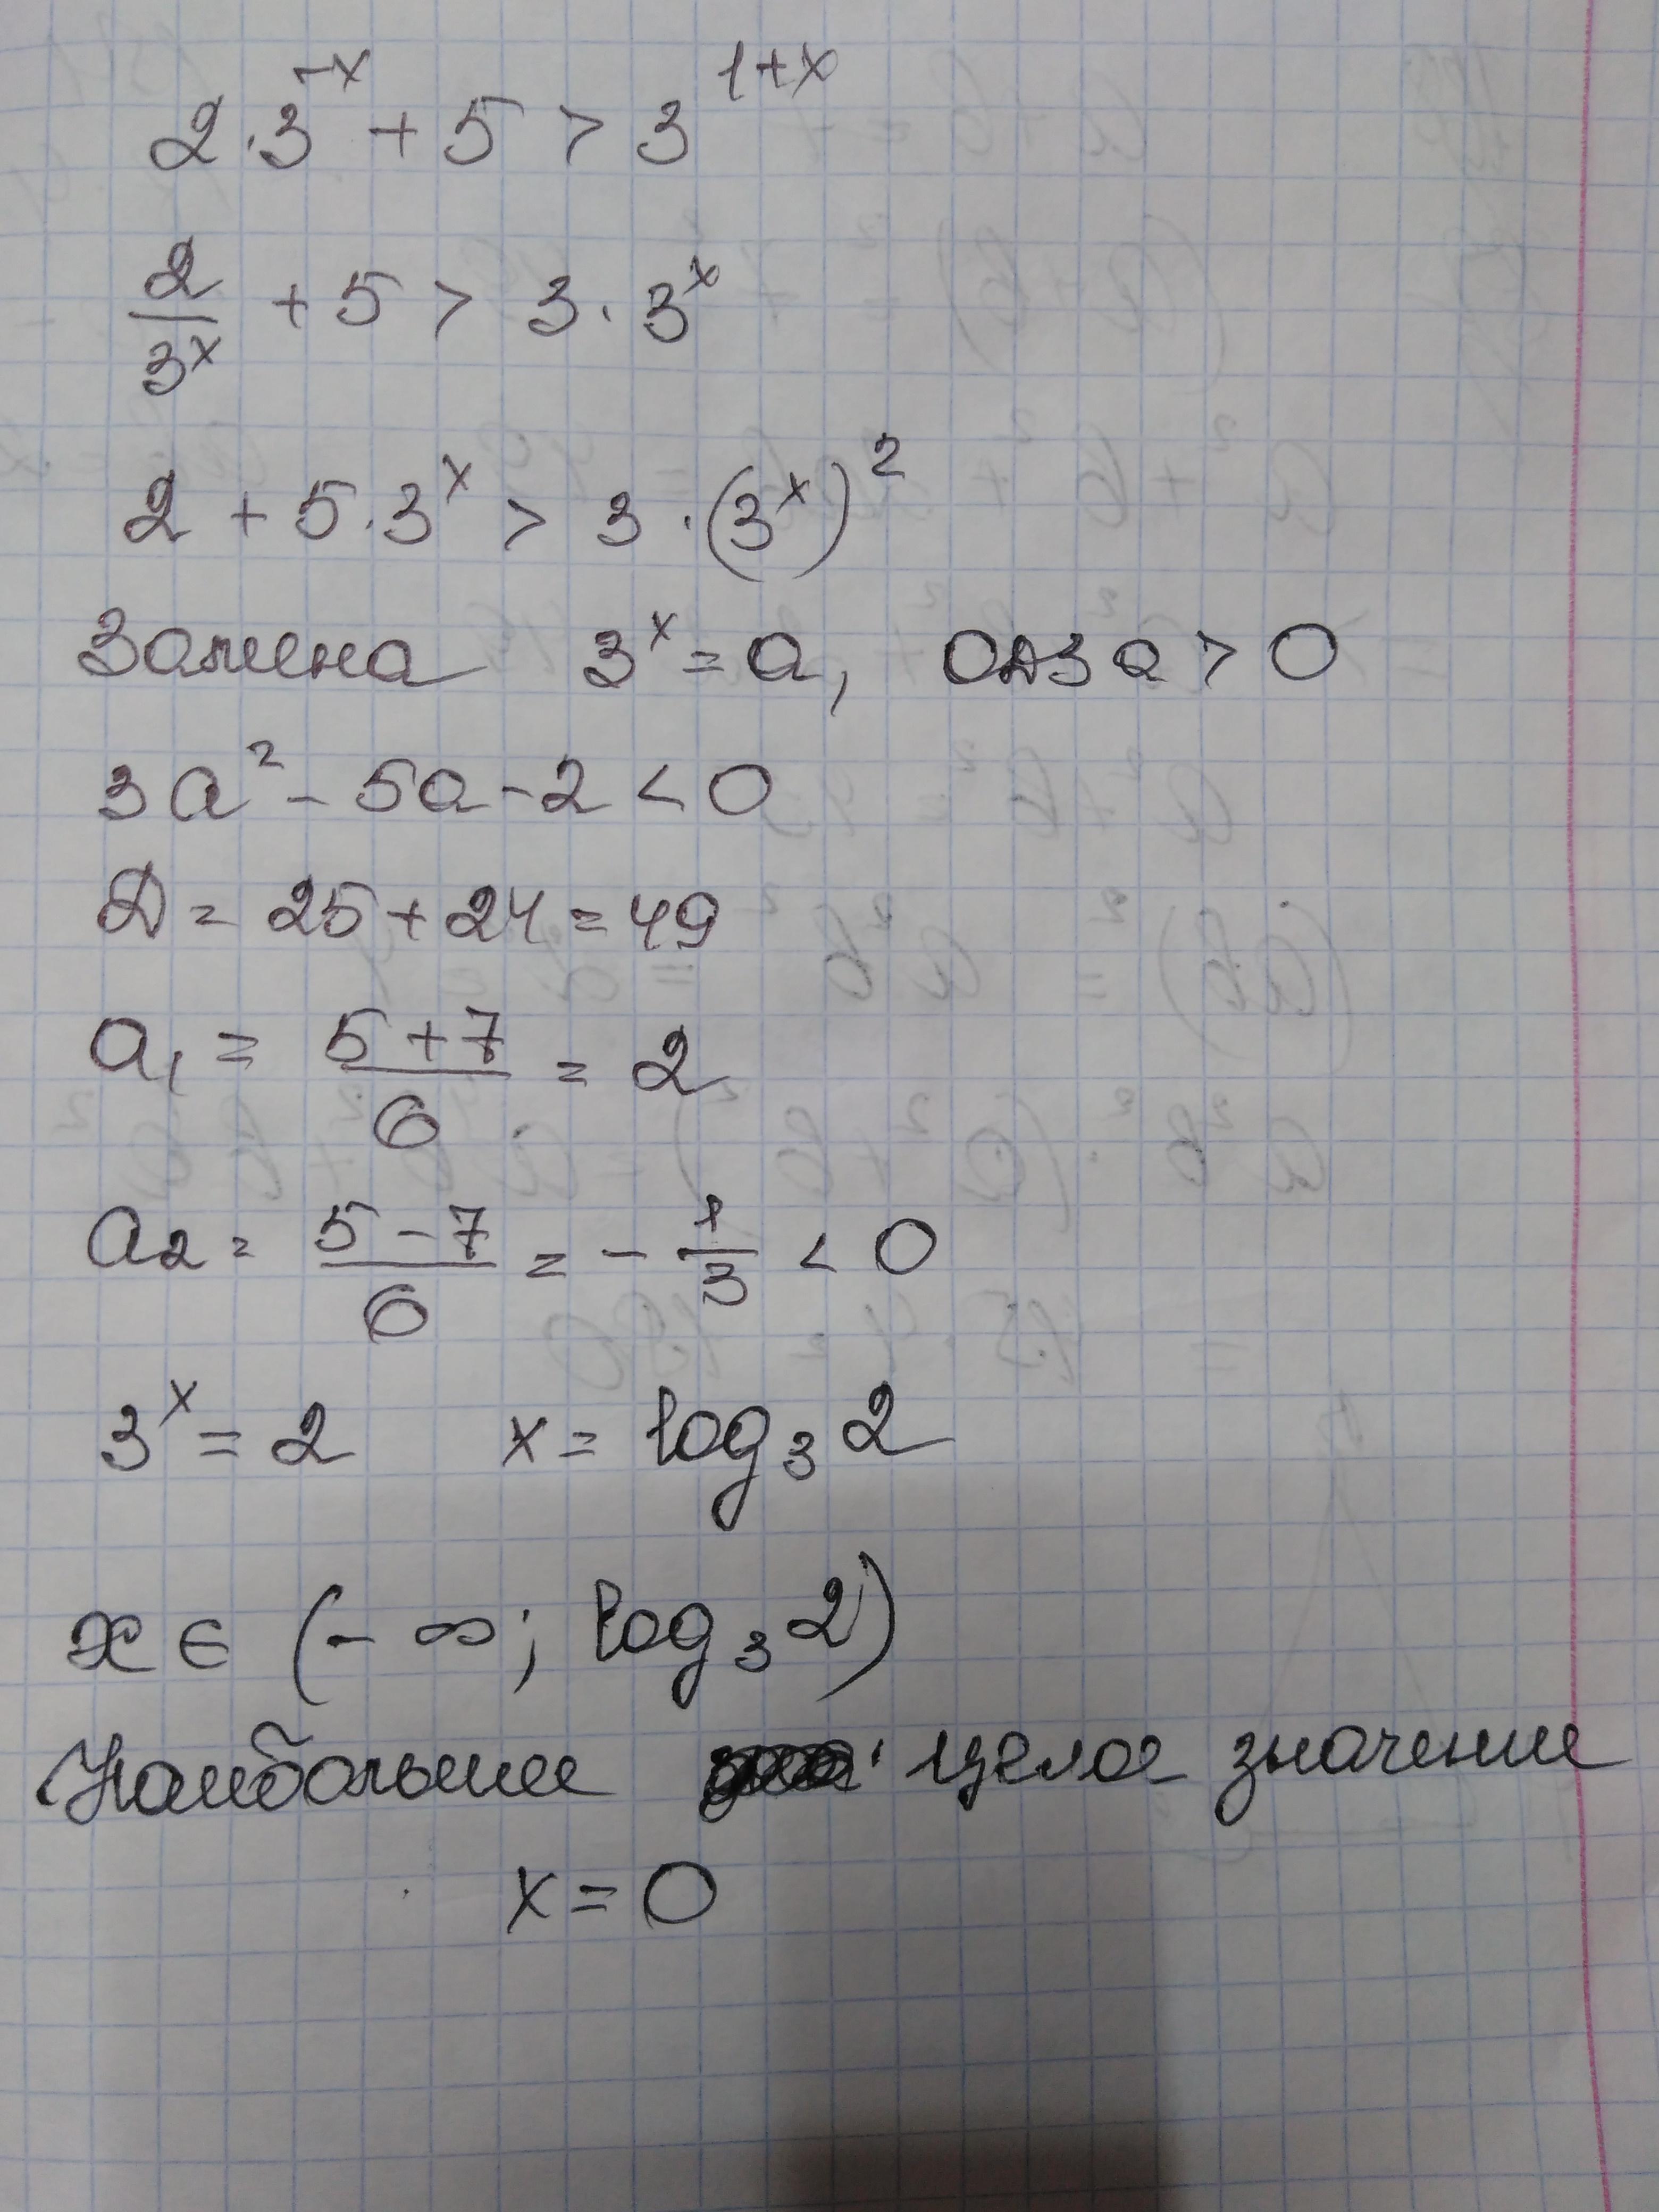 2·3^{-x} + 5 > 3^{1+x}
\frac{2}{3^x} + 5 > 3·3^x
2 + 5·3^x > 3·(3^x)^2
Замена 3^x = a, ОДЗ a > 0
3a^2 - 5a - 2 < 0
D = 25 + 24 = 49
a_1 = \frac{5+7}{6} = 2
a_2 = \frac{5-7}{6} = -\frac{1}{3} < 0
3^x = 2 x = log_3 2
x ∈ (-∞; log_3 2)
Наибольшее целое значение
x = 0